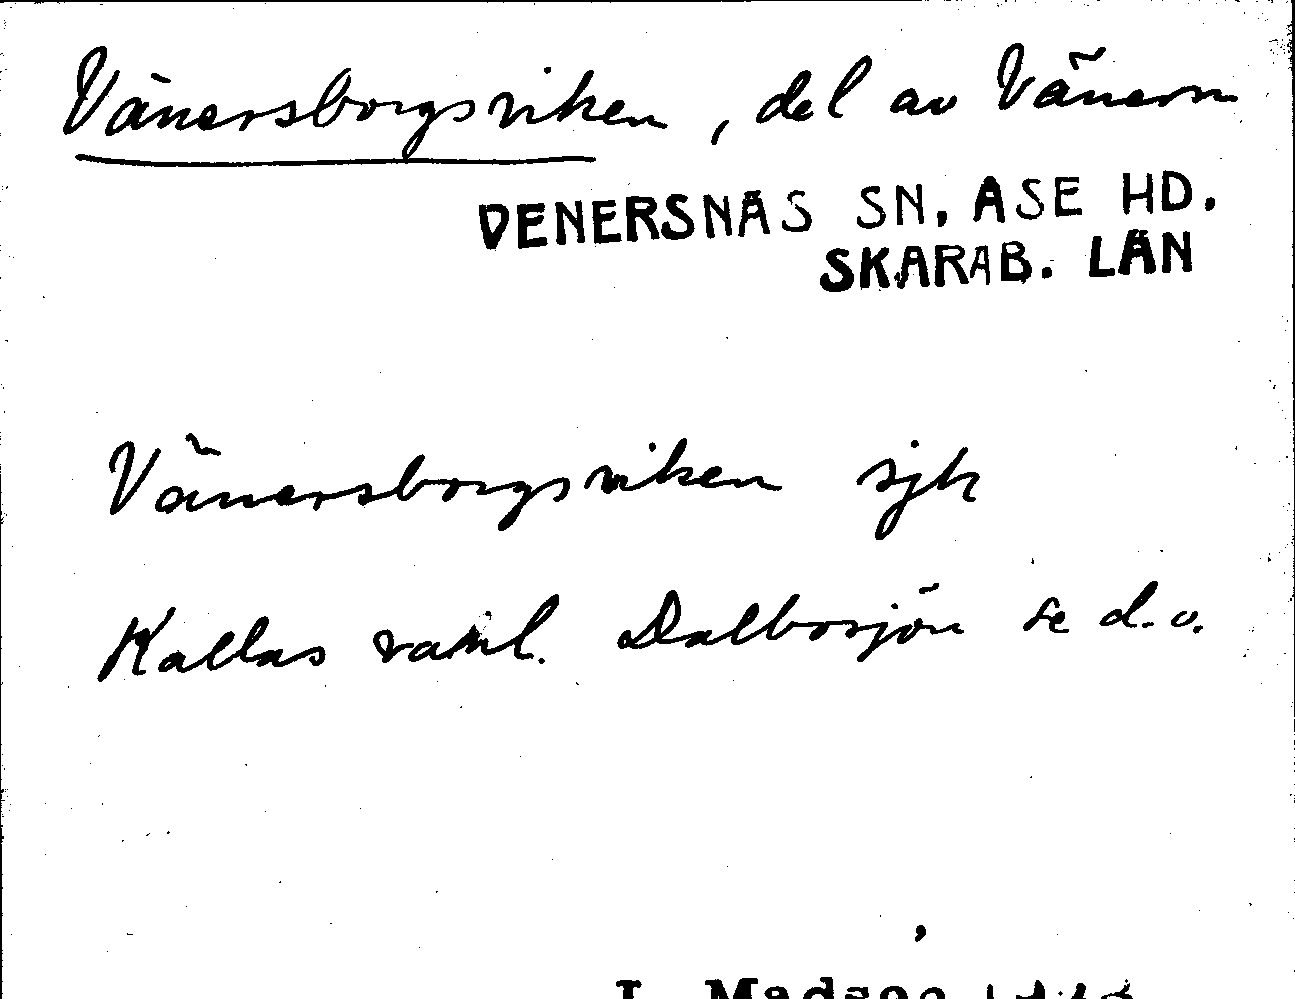 Vänersborgsviken, del av Vänern
VENERSNÄS SN, ÅSE HD.
SKARAB. LÄN
Vänersborgsviken sjk
Kallas vanl. Dalbosjön se d.o.